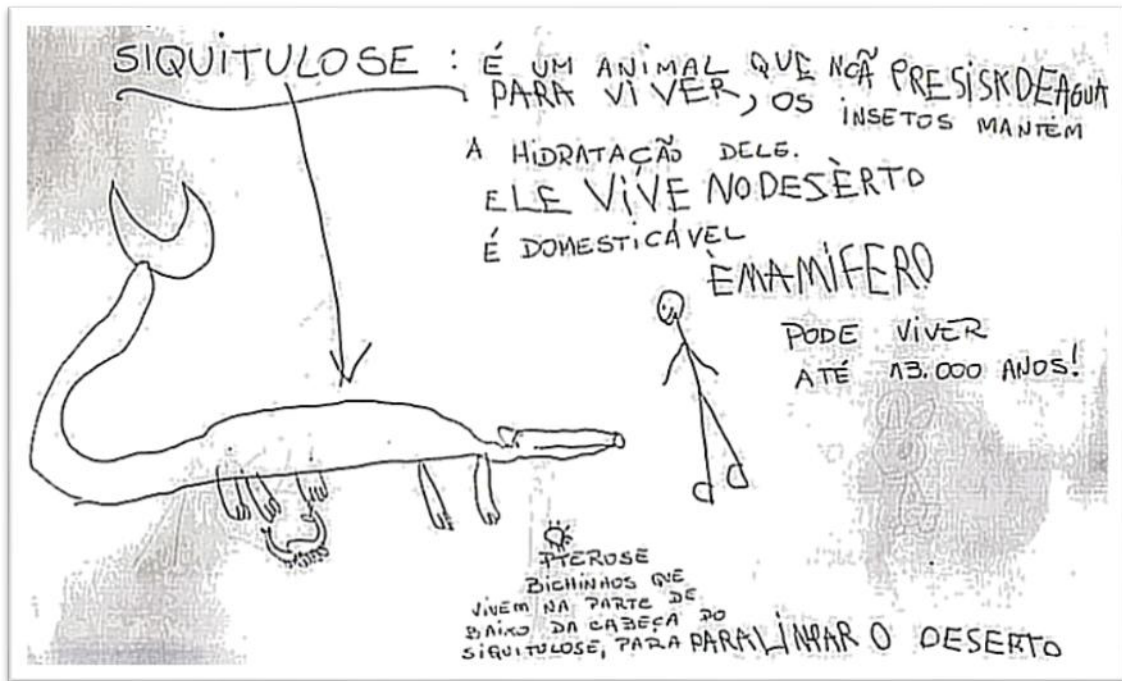 SIQUITULOSE : É UM ANIMAL QUE NCÃ PRESISKDEAGUA
PARA VIVER, OS INSETOS MANTÉM
A HIDRATAÇÃO DELE.
ELE VIVE NODESÈRTO
É DOMESTICÁVEL
ÈMAMÍFERO
PODE VIVER
ATÉ 13.000 ANOS!
PTEROSE
BICHINHOS QUE
VIVEM NA PARTE DE
BAIXO DA CABEÇA DO
SIQUITULOSE, PARA PARALINPAR O DESERTO